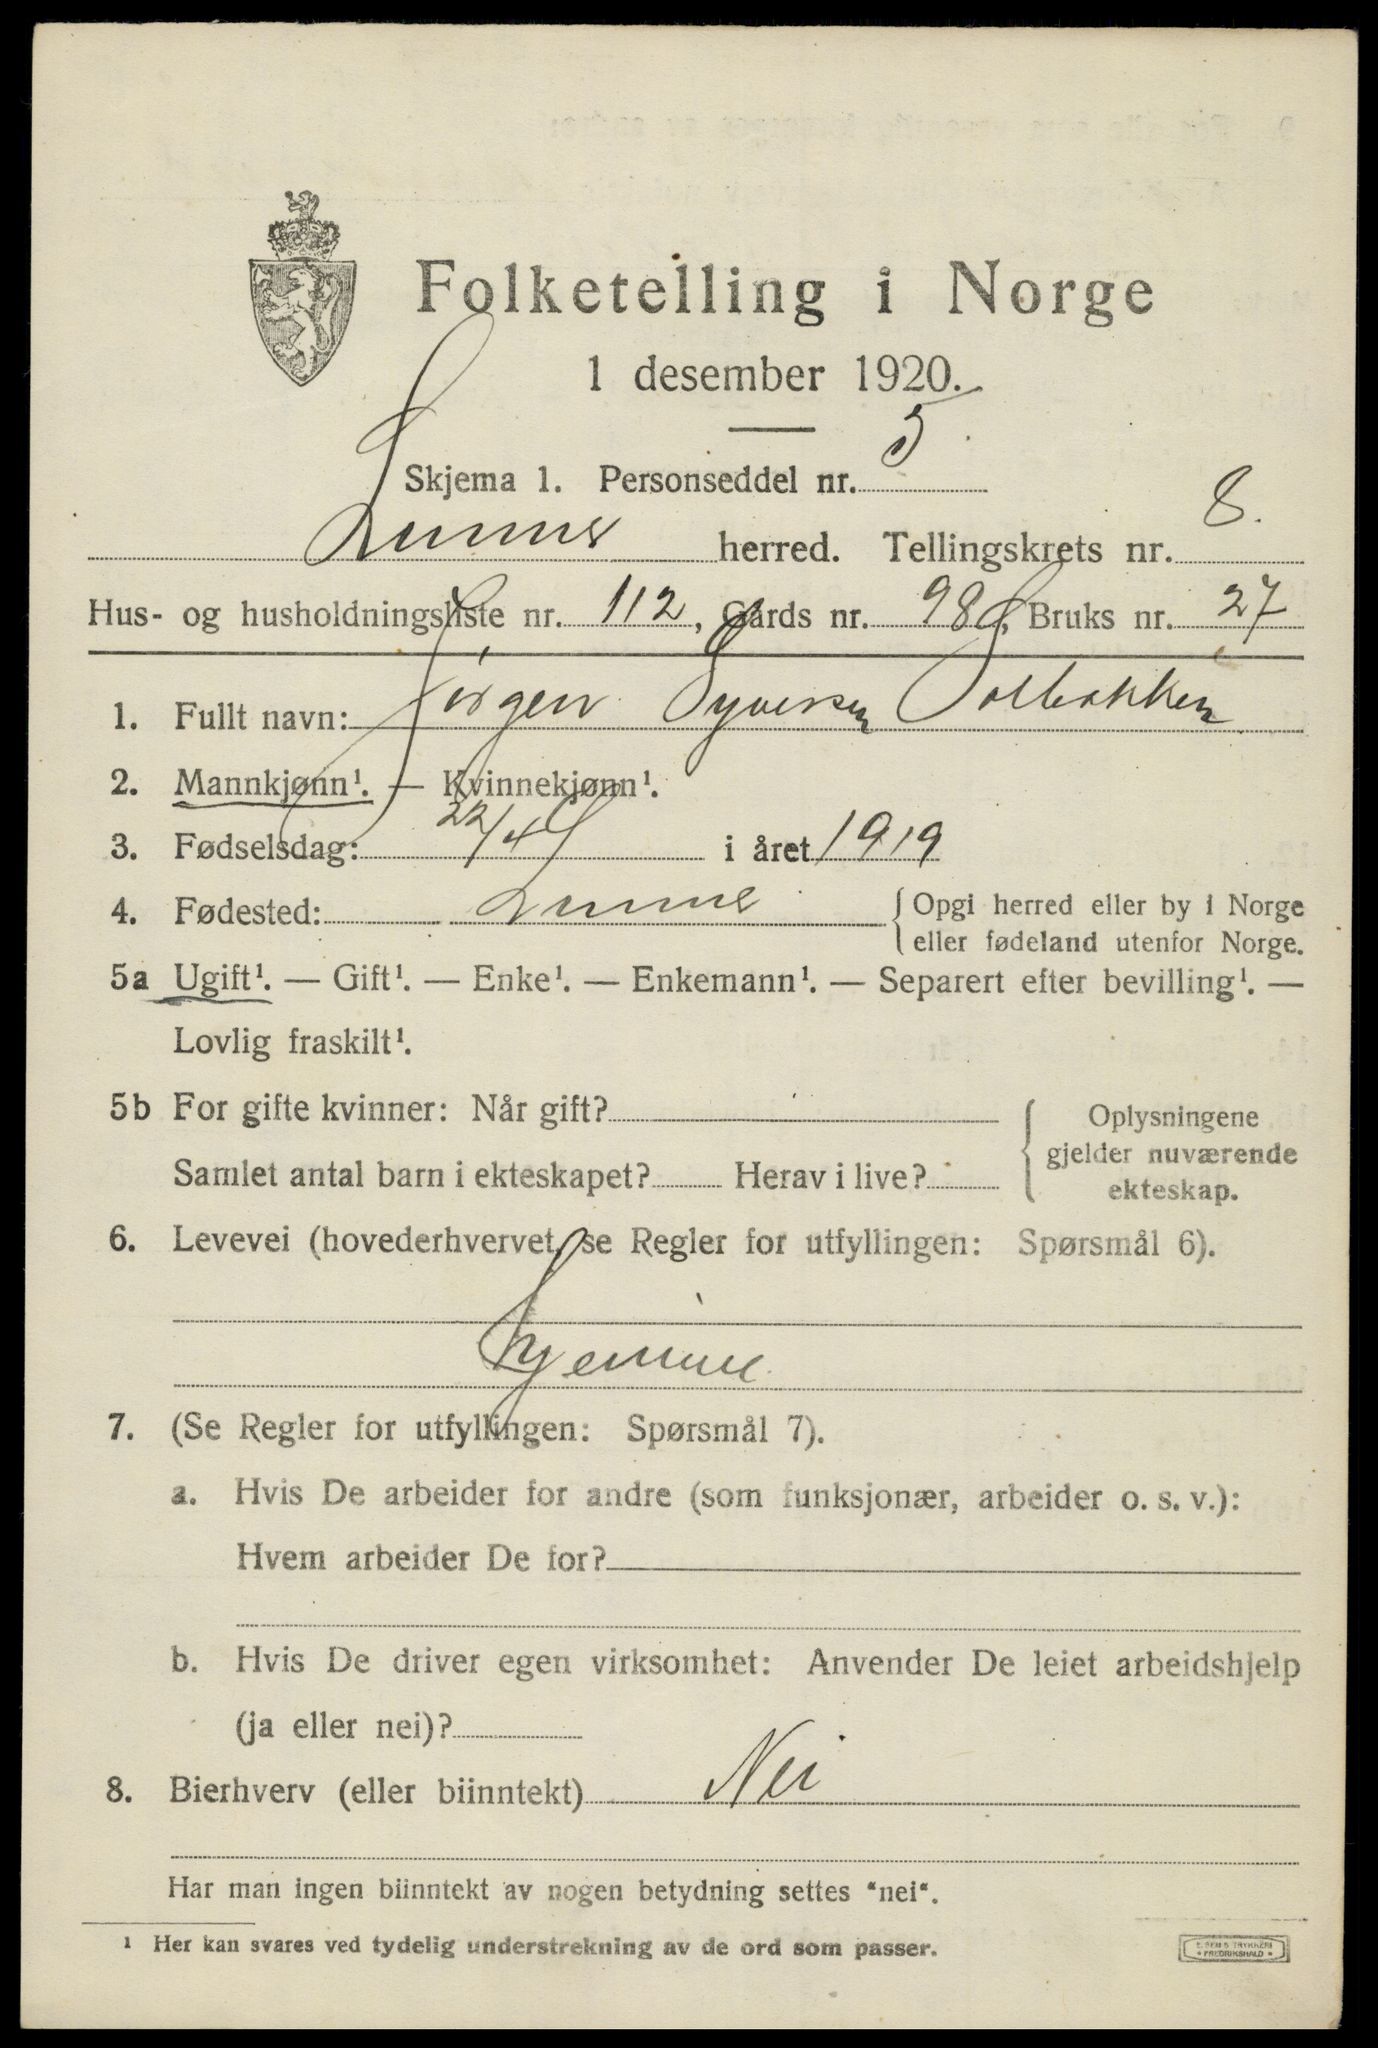 Folketelling i Norge
1 desember 1920.
Skjema 1. Personseddel nr. 5.
Lunner herred. Tellingskrets nr. 8.
Hus- og husholdningsliste nr. 112, Gårds nr. 98, Bruks nr. 27
1. Fullt navn: Jörgen Syversen Solbakken
2. Mannkjønn¹. — Kvinnekjønn¹.
3. Fødselsdag: 22/4 i året 1919
4. Fødested: Lunner { Opgi herred eller by i Norge
eller fødeland utenfor Norge.
5a Ugift¹. — Gift¹. — Enke¹. — Enkemann¹. — Separert efter bevilling¹. —
Lovlig fraskilt¹.
5b For gifte kvinner: Når gift? { Oplysningene
gjelder nuværende
Samlet antal barn i ekteskapet? Herav i live? ekteskap.
6. Levevei (hovederhvervet, se Regler for utfyllingen: Spørsmål 6).
Hjemme
7. (Se Regler for utfyllingen: Spørsmål 7).
a. Hvis De arbeider for andre (som funksjonær, arbeider o. s. v.):
Hvem arbeider De for?
b. Hvis De driver egen virksomhet: Anvender De leiet arbeidshjelp
(ja eller nei)?
8. Bierhverv (eller biinntekt) Nei
Har man ingen biinntekt av nogen betydning settes "nei".
¹ Her kan svares ved tydelig understrekning av de ord som passer.
TRYKKERI
* FREDRIKSHALD *